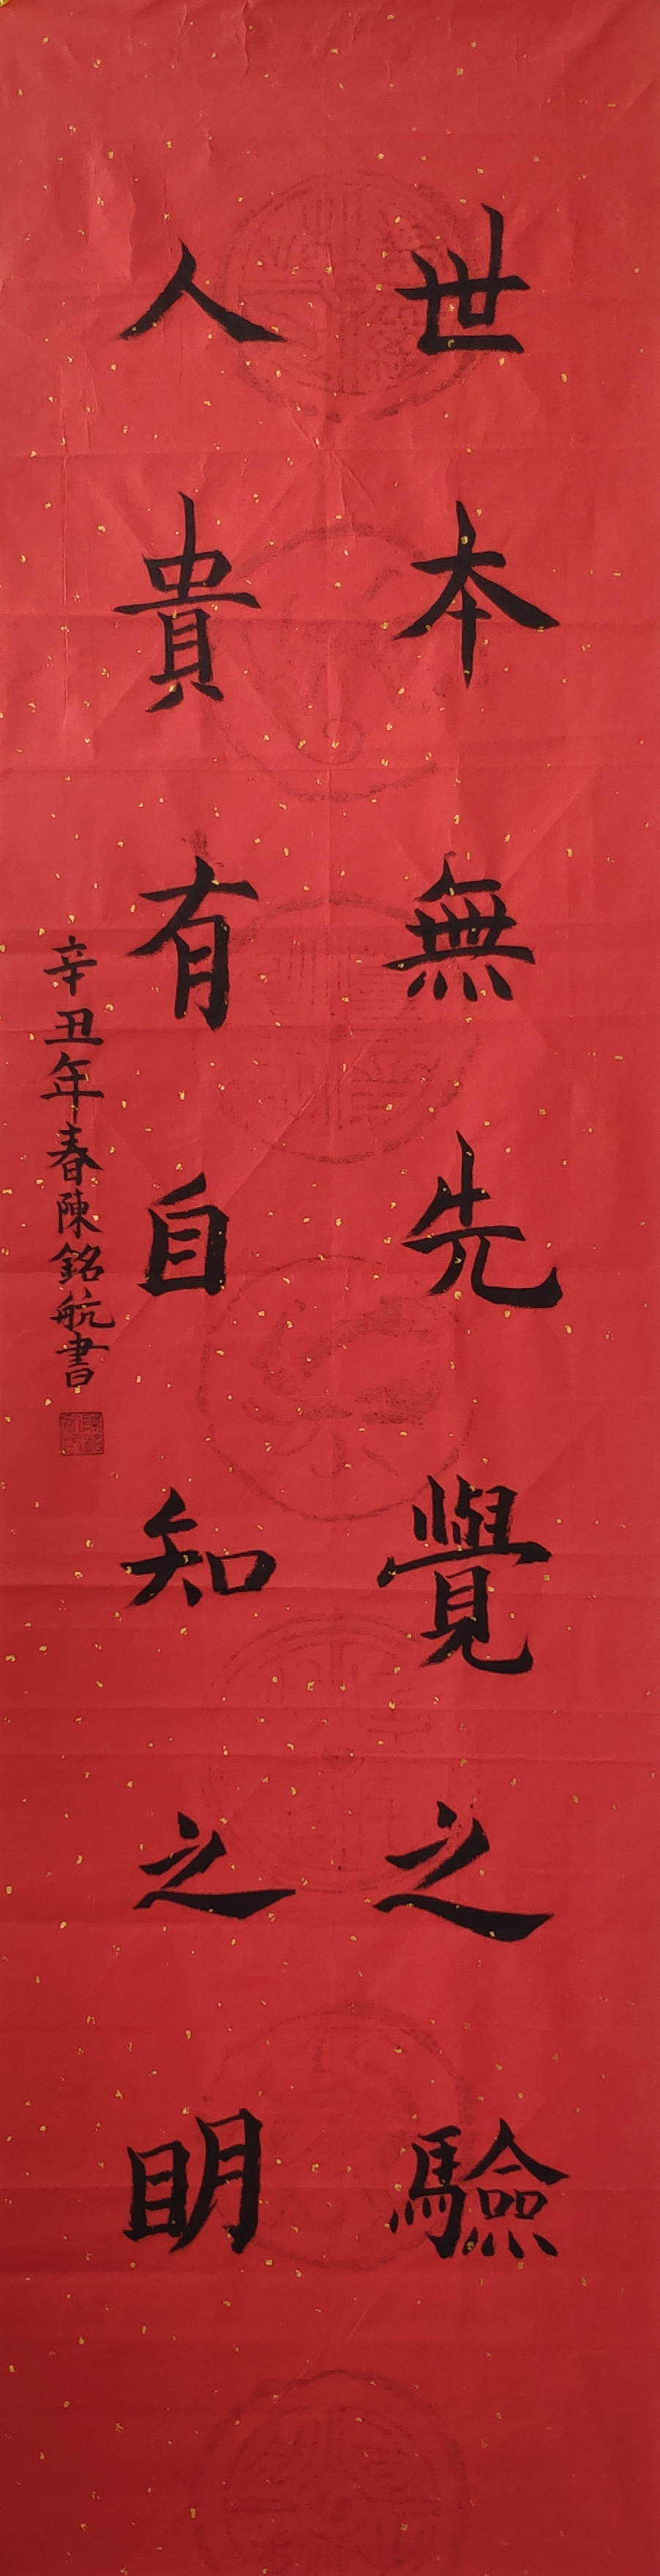 世本無先覺之驗
人貴有自知之明
辛丑年春陳銘航書